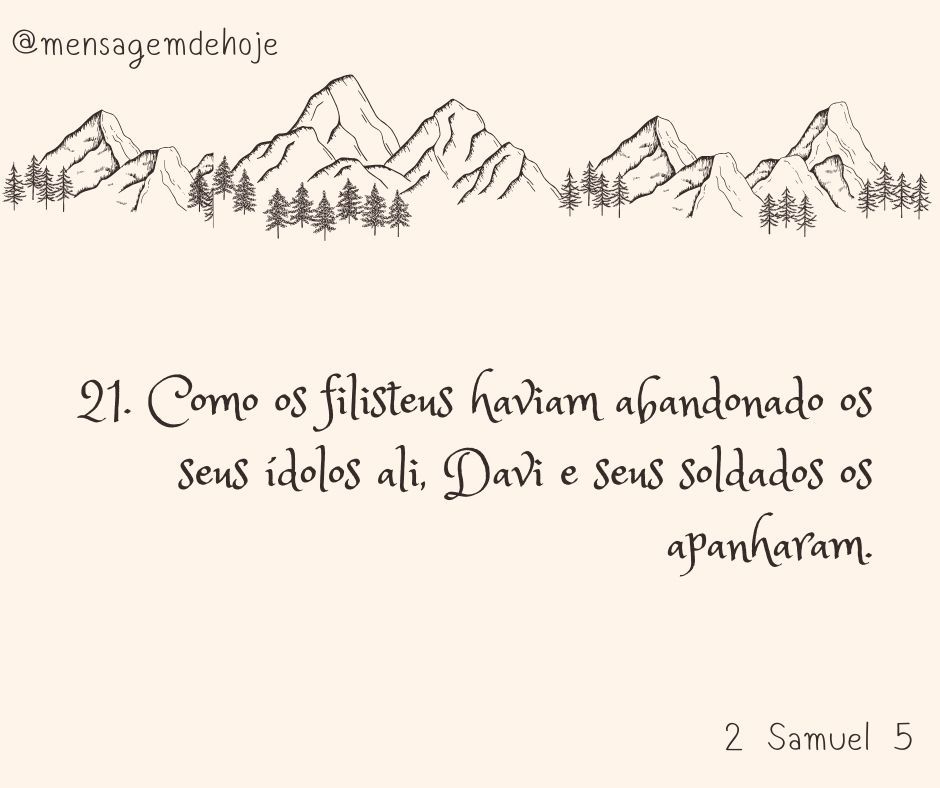 @mensagemdehoje
21. Como os filisteus haviam abandonado os
seus ídolos ali, Davi e seus soldados os
apanharam.
2 Samuel 5